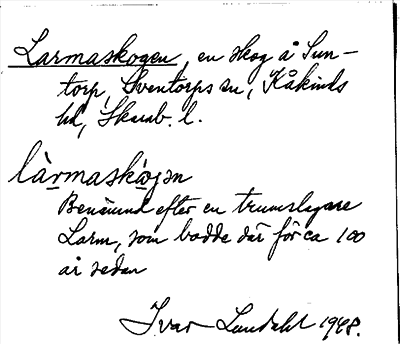 Larmaskogen, en skog å Sun-
torp, Sventorps sn, Kåkinds
hd, Skarab. l.
là̱rmaskò̱gən
Benämnd efter en trumslagare
Larm, som bodde där för ca 100
år sedan
Ivar Lundahl 1948.